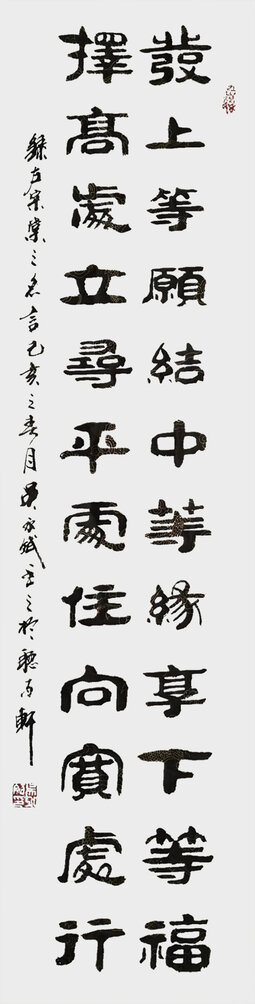 發上等願結中等緣享下等福
擇高處立尋平處住向寬處行
錄左宗棠之名言己亥之春月吳永斌書之於聽雨軒